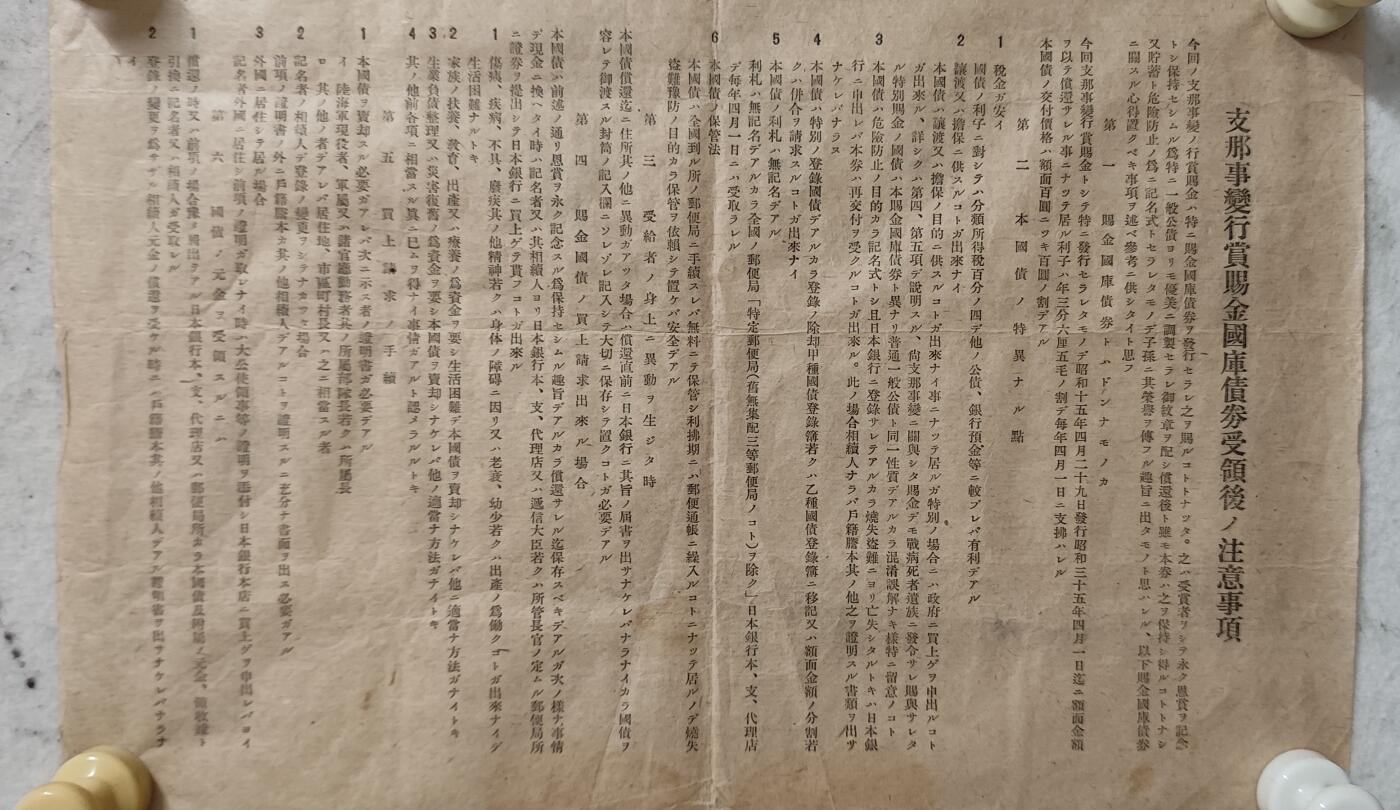 支那事變行賞賜金國庫債劵受領後ノ注意事項
今回ノ支那事變ノ行賞賜金ハ特ニ賜金國庫債券ヲ發行セラレ之ヲ賜ルコトトナツタ。之ハ受賞者ヲシテ永ク恩賞ヲ記念
トシ保持セシムル爲特ニ一般公債ヨリモ優美ニ調製セラレ御紋章ヲ配シ償還後ト雖モ本券ハ之ヲ保持シ得ルコトトナシ
又貯蓄ト危險防止ノ爲ニ記名式トセラレタモノデ子孫ニ其榮譽ヲ傳フル趣旨ニ出タモノト思ハレル、以下賜金國庫債券
ニ關スル心得置クベキ事項ヲ述ベ參考ニ供シタイト思フ
第一 賜金國庫債券トハドンナモノカ
今回支那事變行賞賜金トシテ特ニ發行セラレタモノデ昭和十五年四月二十九日發行昭和三十五年四月一日迄ニ額面金額
ヲ以テ償還サレル事ニナツテ居ル利子ハ年三分六厘五毛ノ割デ每年四月一日ニ支拂ハレル
本國債ノ交付價格ハ額面百圓ニツキ百圓ノ割デアル
第二 本國債ノ特異ナル點
1 稅金ガ安イ
國債ノ利子ニ對シテハ分類所得稅百分ノ四デ他ノ公債、銀行預金等ニ較ブレバ有利デアル
2 讓渡又ハ擔保ニ供スルコトガ出來ナイ
本國債ハ讓渡又ハ擔保ノ目的ニ供スルコトガ出來ナイ事ニナツテ居ルガ特別ノ場合ニハ政府ニ買上ゲヲ申出ルコト
ガ出來ル、詳シクハ第四、第五項デ說明スル、尙支那事變ニ關與シタ賜金デモ戰病死者遺族ニ發令サレ賜與サレタ
ル特別賜金ノ國債ハ本賜金國庫債券ト異ナリ普通一般公債ト同一性質デアルカラ混淆誤解ナキ樣特ニ留意ノコト
3 本國債ハ危險防止ノ目的カラ記名式トシ且日本銀行ニ登錄サレテアルカラ燒失盜難ニヨリ亡失シタルトキハ日本銀
行ニ申出レバ本券ハ再交付ヲ受クルコトガ出來ル。此ノ場合相續人ナラバ戶籍謄本其ノ他之ヲ證明スル書類ヲ出サ
ナケレバナラヌ
4 本國債ハ特別ノ登錄國債デアルカラ登錄ノ除却甲種國債登錄簿若クハ乙種國債登錄簿ニ移記又ハ額面金額ノ分割若
クハ併合ヲ請求スルコトガ出來ナイ
5 本國債ノ利札ハ無記名デアル
利札ハ無記名デアルカラ全國ノ郵便局「特定郵便局(舊無集配三等郵便局ノコト)ヲ除ク」日本銀行本、支、代理店
デ每年四月一日ニハ受取ラレル
6 本國債ノ保管法
本國債ハ全國到ル所ノ郵便局ニ手續スレバ無料ニテ保管シ利拂期ニハ郵便通帳ニ繰入ルコトニナツテ居ルノデ燒失
盜難豫防ノ目的カラ保管ヲ依賴シテ置ケバ安全デアル
第三 受給者ノ身上ニ異動ヲ生ジタ時
本國債償還迄ニ住所其ノ他ニ異動ガアツタ場合ハ償還直前ニ日本銀行ニ其旨ノ屆書ヲ出サナケレバナラナイカラ國債ヲ
容レテ御渡スル封筒ノ記入欄ニソレゾレ記入シテ大切ニ保存シテ置クコトガ必要デアル
第四 賜金國債ノ買上請求出來ル場合
本國債ハ前述ノ通リ恩賞ヲ永ク記念スル爲保持セシムル趣旨デアルカラ償還サレル迄保存スベキデアルガ次ノ樣ナ事情
デ現金ニ換ヘタイ時ハ記名者又ハ其相續人ヨリ日本銀行本、支、代理店又ハ遞信大臣若クハ所管長官ノ定ムル郵便局所
ニ證券ヲ提出シテ日本銀行ニ買上ゲテ貰フコトガ出來ル
1 傷痍、疾病、不具、廢疾其ノ他精神若クハ身体ノ障碍ニ因リ又ハ老衰、幼少若クハ出產ノ爲働クコトガ出來ナイデ
生活困難ナルトキ
2 家族ノ扶養、敎育、出產又ハ療養ノ爲資金ヲ要シ生活困難デ本國債ヲ賣却シナケレバ他ニ適當ナ方法ガナイトキ
3 生業負債整理又ハ災害復舊ノ爲資金ヲ要シ本國債ヲ賣却シナケレバ他ノ適當ナ方法ガナイトキ
4 其ノ他前各項ニ相當スル眞ニ已ムヲ得ナイ事情ガアルト認メラルルトキ
第五 買上請求ノ手續
1 本國債ヲ賣却スル必要ガアレバ次ニ示ス者ノ證明書ガ必要デアル
イ 陸海軍現役者、軍屬又ハ諸官廳勤務者其ノ所屬部隊長若クハ所屬長
ロ 其ノ他ノ者デアレバ居住地、市區町村長又ハ之ニ相當スル者
2 記名者ノ相續人デ登錄ノ變更ヲシテナカツタ場合
前項ノ證明書ノ外ニ戶籍謄本カ其ノ他相續人デアルコトヲ證明スルニ充分ナ書面ヲ出ス必要ガアル
3 外國ニ居住シテ居ル場合
記名者外國ニ居住シ前項ノ證明ガ取レナイ時ハ大公使領事等ノ證明ヲ添付シ日本銀行本店ニ買上ゲヲ申出レバヨイ
第六 國債ノ元金ヲ受領スルニハ
1 償還ノ時又ハ前項ノ場合豫メ屆出テアル日本銀行本、支、代理店又ハ郵便局所カラ本國債及附屬ノ元金、領收證ト
引換ニ記名者又ハ相續人ガ受取レル
2 登錄ノ變更ヲ爲サザル相續人元金ノ償還ヲ受ケル時ニハ戶籍謄本其ノ他相續人デアル證明書ヲ出サナケレバナラナ
イ